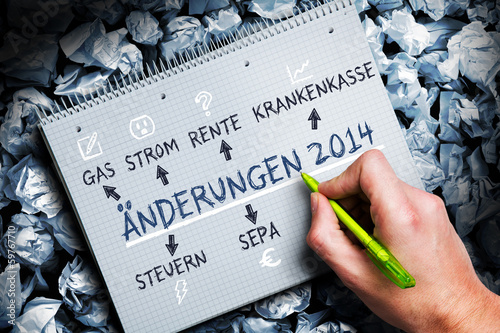 GAS STROM RENTE KRANKENKASSE
ÄNDERUNGEN 2014
STEUERN SEPA
59767710